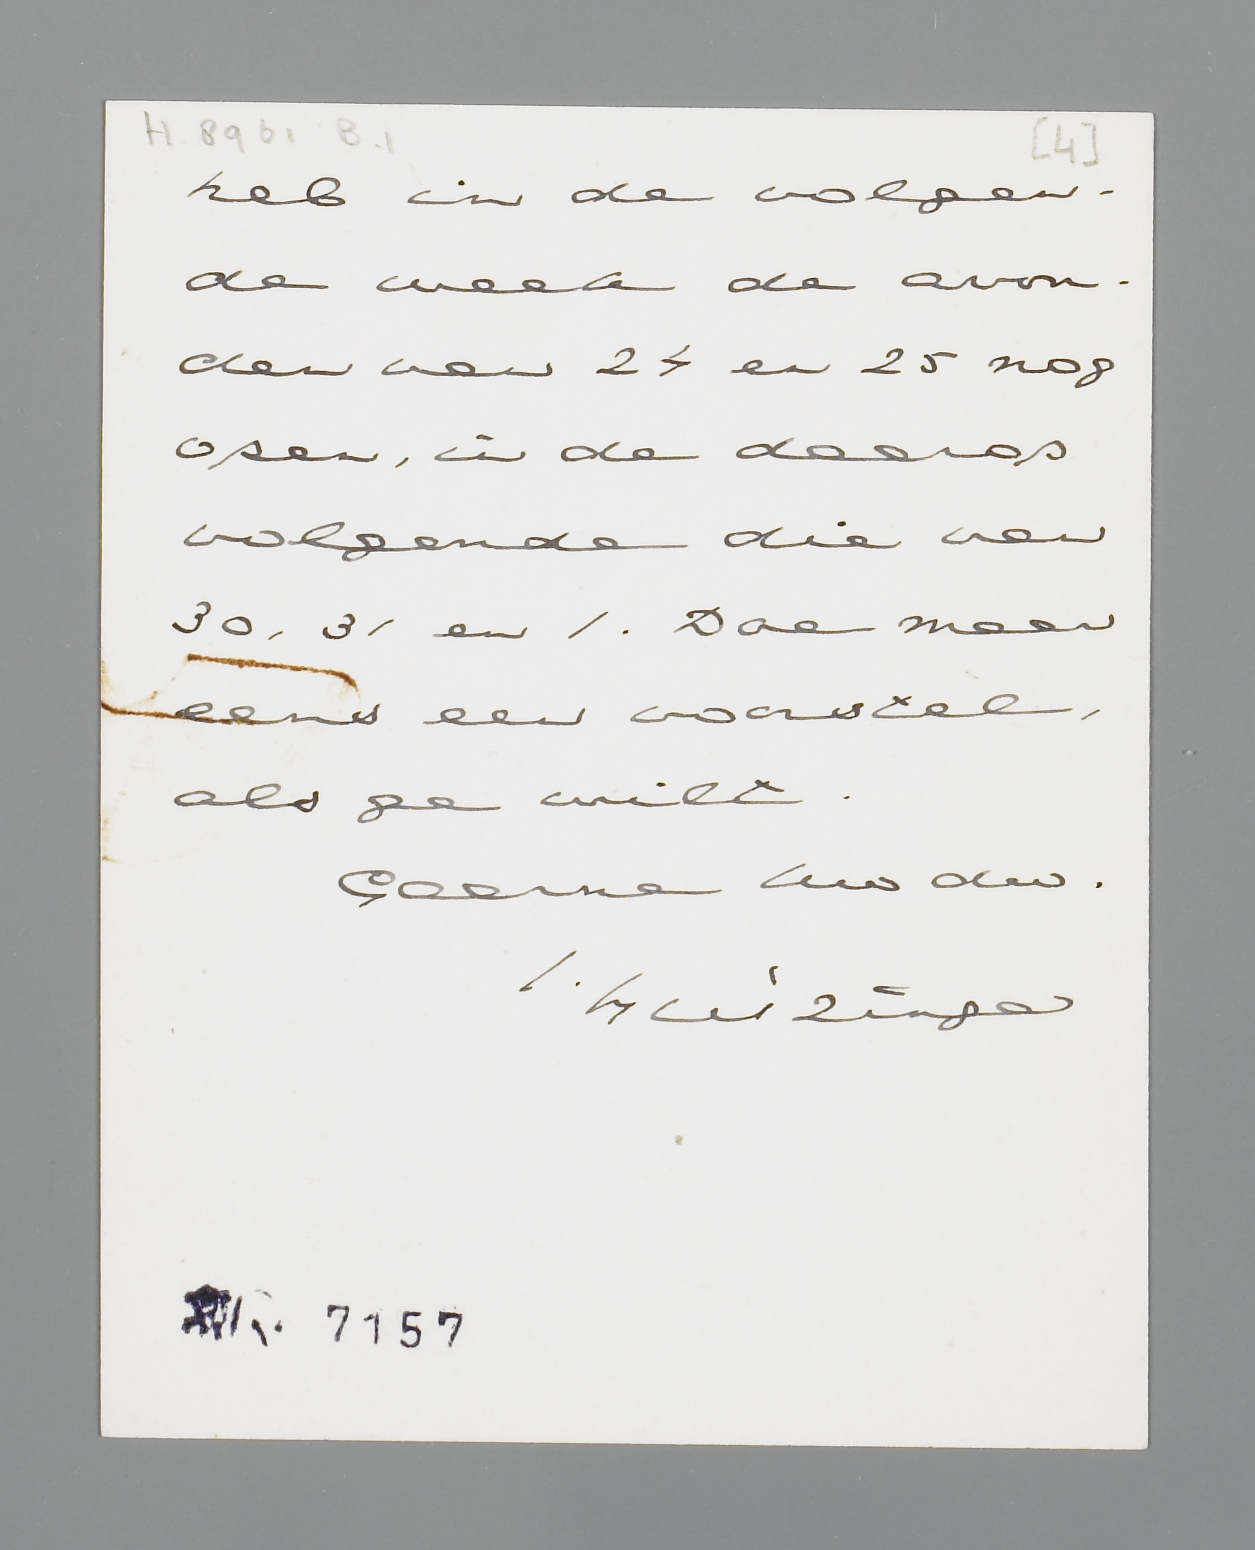 H. 8961 B.1 [4]
heb in de volgen-
de week de avon-
den van 24 en 25 nog
open, in de daarop
volgende die van
30, 31 en 1. Doe maar
eens een voorstel,
als ge wilt.
Gaarne Uw dw.
J. Huizinga
7157